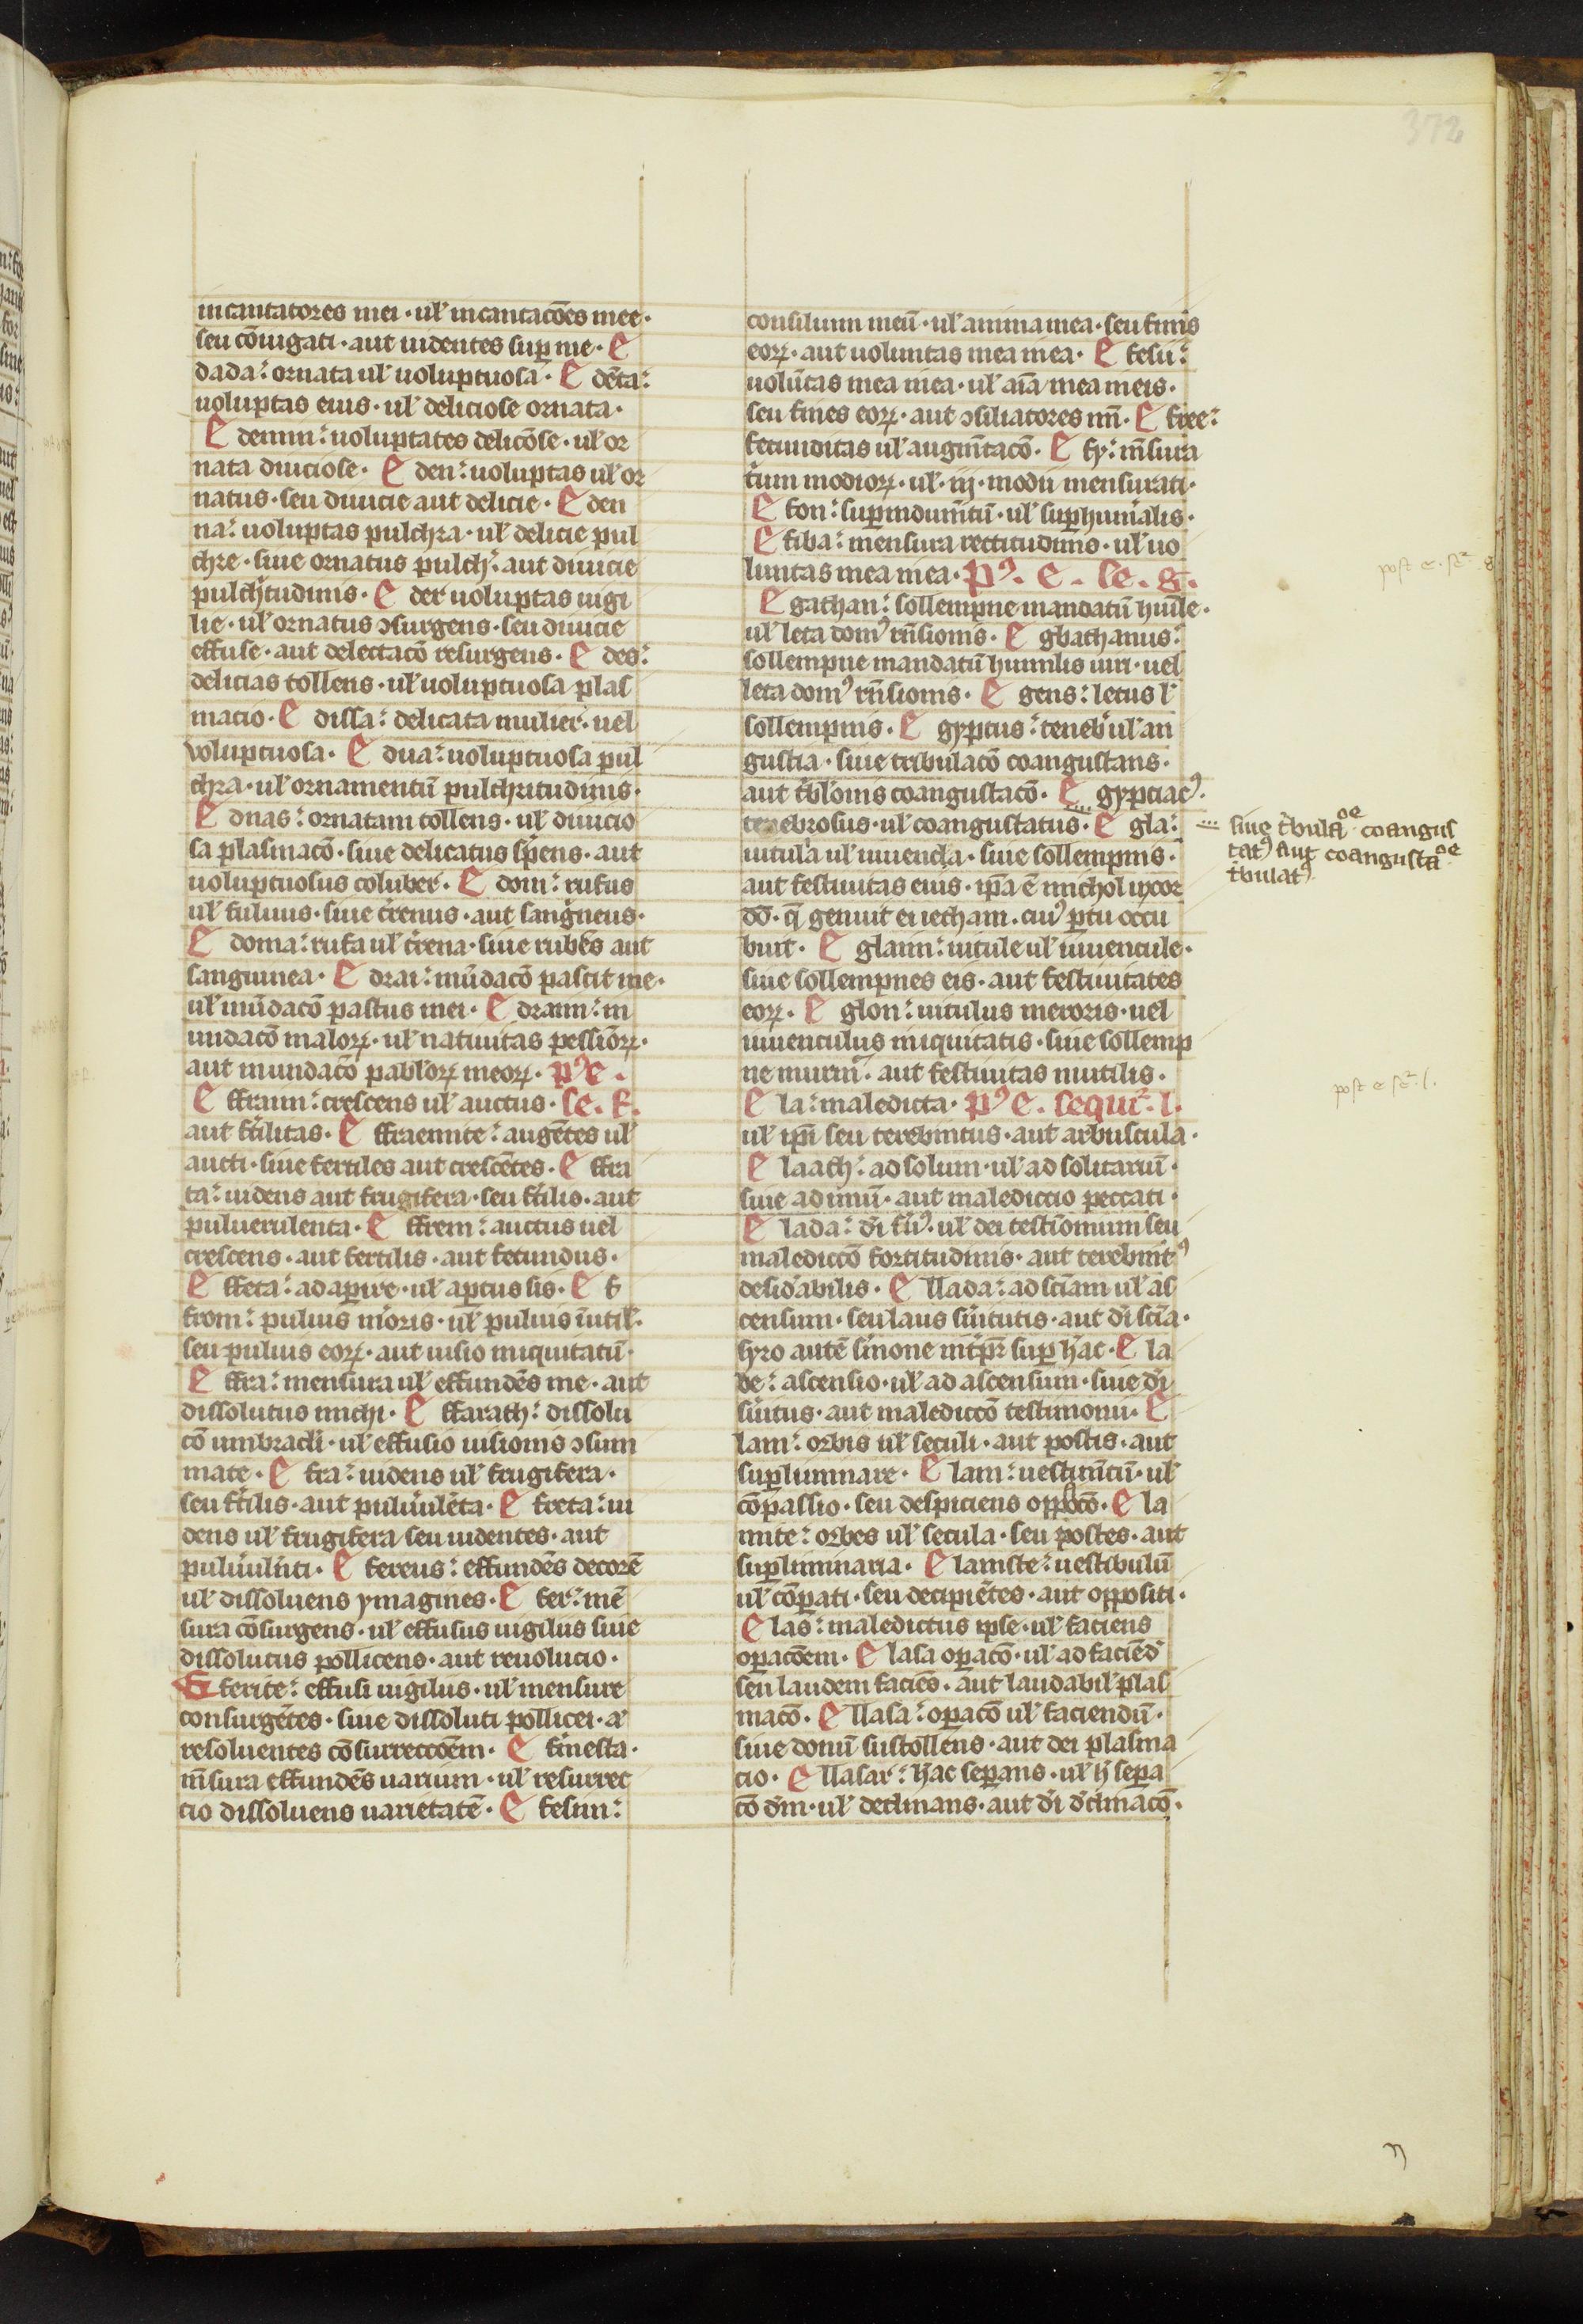 372
incantatores mei · ul' incantacōes mee ·
seu cōiugati · aut uidentes sup me · E
dada: ornata ul' uoluptuosa · E dēta:
uoluptas eius · ul' deliciose ornata ·
E demin: uoluptates deliciōse · ul' or
nata diuiciose · E den: uoluptas ul' or
natus · seu diuicie aut delicie · E den
na: uoluptas pulchra · ul' delicie pul
chre · siue ornatus pulch' · aut diuicie
pulch'tudinis · E der uoluptas uigi
lie · ul' ornatus ɔsurgens · seu diuicie
effuse · aut delectacō resurgens · E des:
delicias tollens · ul' uoluptuosa plas
macio · E dissa: delicata mulier · uel
uoluptuosa · E dua: uoluptuosa pul
chra · ul' ornamentū pulchritudinis ·
E duas: ornatam tollens · ul' diuicio
sa plasmacō · siue delicatus spens · aut
uoluptuosus coluber · E dom: rufus
ul' fuluus · siue t'renus · aut sang'neus ·
E doma: rufa ul' t'rena · siue rubēs aut
sanguinea · E drai: mūdacō pascit me ·
ul' mūdacō pastus mei · E draim: in
undacō maloꝝ · ul' natiuitas pessiōꝝ ·
aut inundacō pabl'oꝝ meoꝝ · p' e ·
E ffraim: crescens ul' auctus · se · f ·
aut f'tilitas · E ffraemite: augētes ul'
aucti · siue fertiles aut crescētes · E ffra
ta: uidens aut frugifera · seu f'tilis · aut
puluerulenta · E ffrem: auctus uel
crescens · aut fertilis · aut fecundus ·
E ffeta: adapire · ul' aptus sis · E f
from: puluis m'oris · ul' puluis iutil' ·
seu puluis eoꝝ · aut uisio iniquitatū ·
E ffra: mensura ul' effundēs me · aut
dissolutus michi · E ffarath: dissolu
cō umbracl'i · ul' effusio uisionis ɔsum
mate · E fra: uidens ul' frugifera ·
seu f'tilis · aut puluulēta · E freta: ui
dens ul' frugifera seu uidentes · aut
puluul'nti · E fereus: effundēs decorē
ul' dissoluens ymagines · E fer: mē
sura cōsurgens · ul' effusus uigilus siue
dissolutus pollicens · aut reuolucio ·
E ferite: effusi uigilus · ul' mensure
consurgētes · siue dissoluti pollicei · a'
resoluentes cōsurreccōem · E f'inesta ·
m̄sura effundēs uarium · ul' resurrec
cio dissoluens uarietatē · E fesim:
consilium meū · ul' anima mea · seu finis
eoꝝ · aut uoluntas mea mea · E fesu:
uolūtas mea mea · ul' aīa mea meis ·
seu fines eoꝝ · aut ɔsiliatores mī · E free:
fecunditas ul' augm̄tacō · E fy: m̄sura
t'ium modioꝝ · ul' iij · modii mensurati ·
E fon: supindum̄tū · ul' suphum'alis ·
E fiba: mensura rectitudinis · ul' uo
luntas mea mea · P' · e · se · g ·
E gathan: sollempne mandatū huīle ·
ul' leta dom' rn̄sionis · E gbathanus:
sollempne mandatū humilis uiri · uel
leta dom' rn̄sionis · E gens: letus l'
sollempnis · E gyptus: teneb' ul' an
gustia · siue tribulacō coangustans ·
aut t'bl'onis coangustacō · E gyptiac' ·
tenebrosus · ul' coangustatus · E gla:
uitula ul' iuuencla · siue sollempnis ·
aut festiuitas eius · ip̄a ē michol uxor
dd̄ · q̄ genuit euecham · cui' ptu occu
buit · E glaim: uitule ul' iuuencule ·
siue sollempnes eis · aut festiuitates
eoꝝ · E glon: uitulus meroris · uel
iuuenculus iniquitatis · siue sollemp
ne murm' · aut festiuitas inutilis ·
E la: maledicta · P' e · sequit' · l ·
ul' ip̄i seu terebintus · aut arbuscula ·
E laach: ad solum · ul' ad solitariū ·
siue ad imū · aut malediccio peccati ·
E lada: dī ful' · ul' dei testimonium seu
malediccō fortitudinis · aut terebint'
desid'abilis · E llada: ad sciam ul' as
censum · seu laus s'uitutis · aut dī scīa ·
syro autē s'mone int'p̄r sup hac · E la
be: ascensio · ul' ad ascensum · siue dī
s'uitus · aut malediccō testimonii · E
lam: orbis ul' seculi · aut postis · aut
supliminare · E lam: uestim̄tū · ul'
cōpassio · seu despiciens opp̄ocō · E la
mite: orbes ul' secula · seu postes · aut
supliminaria · E lamste: uestibulū
ul' cōpati · seu decipiētes · aut oppositi ·
E las: maledictus ipse · ul' faciens
opacōem · E lasa opacō · ul' ad faciēd'
seu laudem faciēs · aut laudabil' plas
macō · E llasa: opacō ul' faciendū ·
siue donū sustollens · aut dei plasma
cio · E llasar: hac sepans · ul' h' sepa
cō dm̄ · ul' declinans · aut dī d'clinacō ·
siue t'bulā oe coangus
tat' aut coangustā oe
t'bulat'
post e · sc' · g
post e sc' · l ·